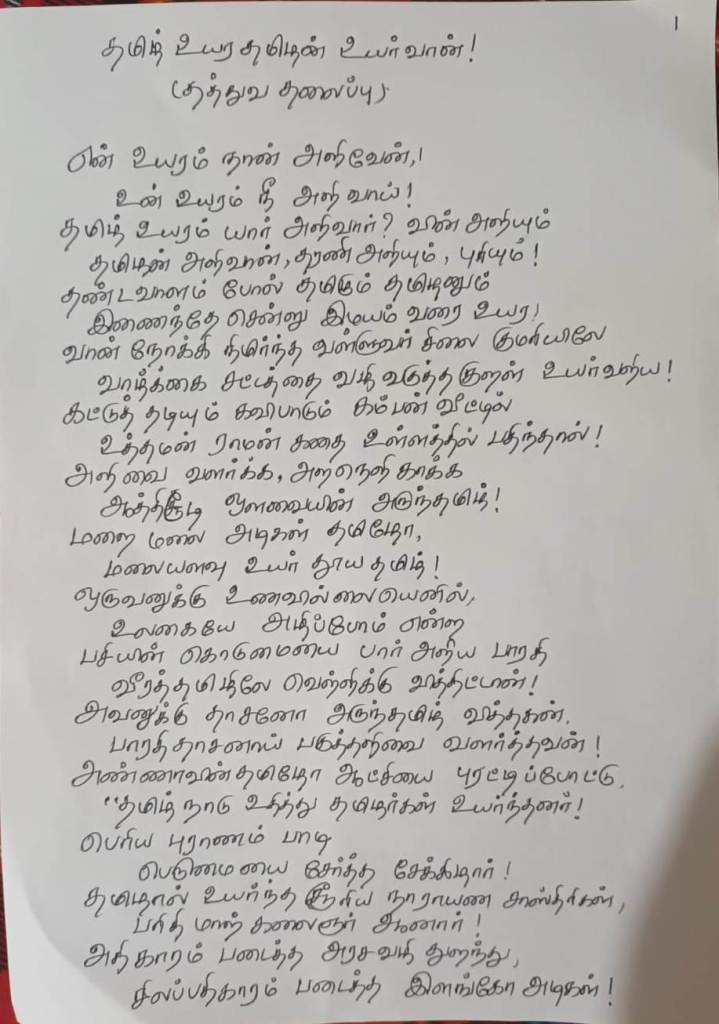 1
தமிழ் உயர தமிழன் உயர்வான்!
(தத்துவ தலைப்பு)
என் உயரம் நான் அறிவேன்,!
உன் உயரம் நீ அறிவாய்!
தமிழ் உயரம் யார் அறிவார்? விண் அறியும்
தமிழன் அறிவான், தரணி அறியும், புரியும்!
தண்டவாளம் போல் தமிழும் தமிழனும்
இணைந்தே சென்று இமயம் வரை உயர!
வான் நோக்கி நிமிர்ந்த வள்ளுவர் சிலை குமரியிலே
வாழ்க்கை சட்டத்தை வழி வகுத்த குறள் உயர்வறிய!
கட்டுத் தடியும் கவிபாடும் கம்பன் வீட்டில்
உத்தமன் ராமன் கதை உள்ளத்தில் பதிந்தான்!
அறிவை வளர்க்க, அறநெறி காக்க
ஆத்திசூடி ஔவையின் அருந்தமிழ்!
மறை மலை அடிகள் தமிழோ,
மலையளவு உயர் தூய தமிழ்!
ஒருவனுக்கு உணவில்லையெனில்,
உலகையே அழிப்போம் என்ற
பசியின் கொடுமையை பார் அறிய பாரதி
வீரத்தமிழிலே வெள்ளிக்கு வித்திட்டான்!
அவனுக்கு தாசனோ அருந்தமிழ் வித்தகன்.
பாரதிதாசனாய் பகுத்தறிவை வளர்த்தவன்!
அண்ணாவின் தமிழோ ஆட்சியை புரட்டிப்போட்டு,
"தமிழ் நாடு உதித்து தமிழர்கள் உயர்ந்தனர்!
பெரிய புராணம் பாடி
பெருமையை சேர்த்த சேக்கிழார்!
தமிழால் உயர்ந்த சூரிய நாராயண சாஸ்திரிகள்,
பரிதி மாற் கலைஞர் ஆனார்!
அதிகாரம் படைத்த அரசவழி துறந்து,
சிலப்பதிகாரம் படைத்த இளங்கோ அடிகள்!